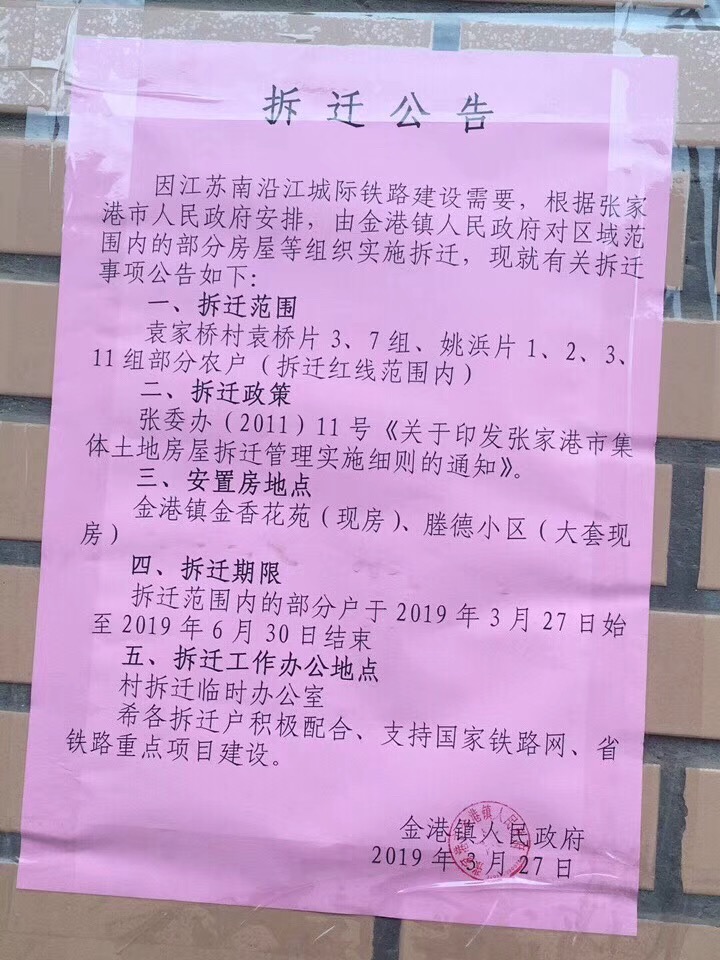 拆迁公告
因江苏南沿江城际铁路建设需要，根据张家
港市人民政府安排，由金港镇人民政府对区域范
围内的部分房屋等组织实施拆迁，现就有关拆迁
事项公告如下：
一、拆迁范围
袁家桥村袁桥片3、7组、姚浜片1、2、3、
11组部分农户（拆迁红线范围内）
二、拆迁政策
张委办（2011）11号《关于印发张家港市集
体土地房屋拆迁管理实施细则的通知》。
三、安置房地点
金港镇金香花苑（现房）、塍德小区（大套现
房）
四、拆迁期限
拆迁范围内的部分户于2019年3月27日始
至2019年6月30日结束
五、拆迁工作办公地点
村拆迁临时办公室
希各拆迁户积极配合、支持国家铁路网、省
铁路重点项目建设。
金港镇人民政府
2019年3月27日